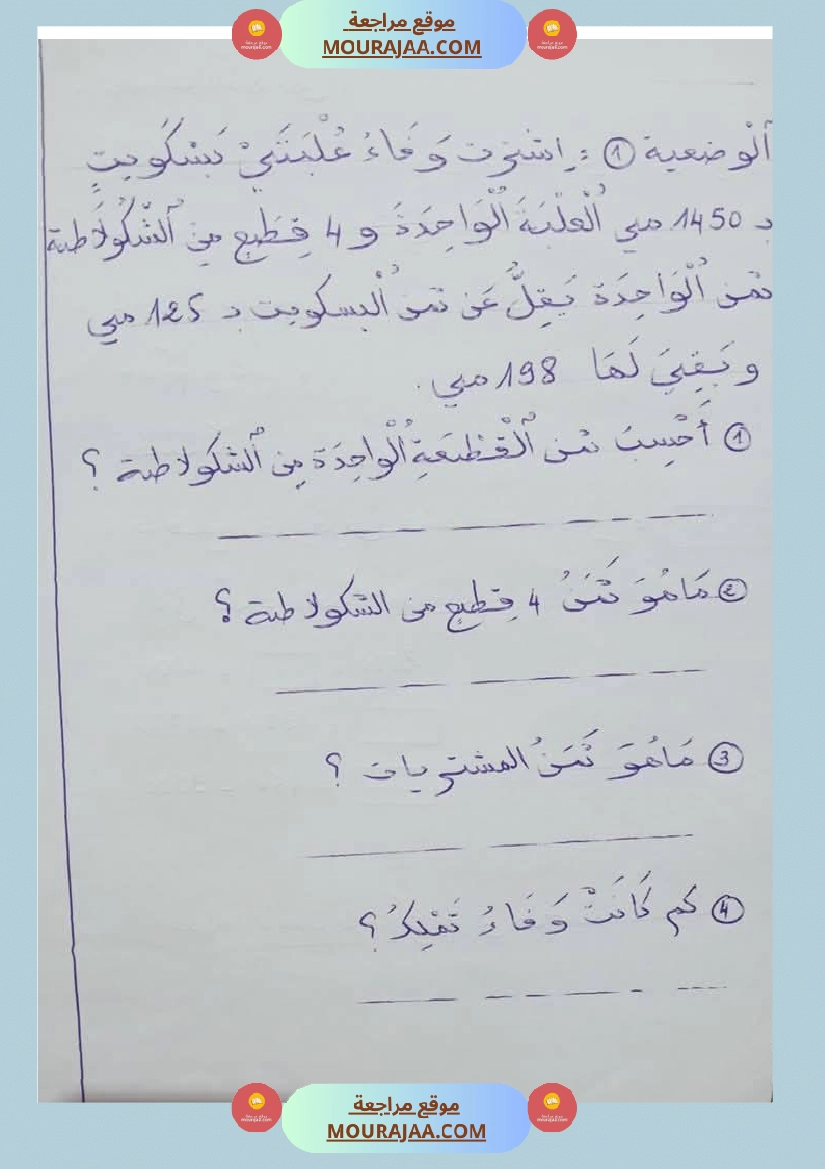 موقع مراجعة
MOURAJAA.COM
ٱلْوضعية ① : اِشترت وَفَاءُ عُلْبَتَيْ بَسْكَوِيتٍ
بـ 1450 مي ٱلْعُلْبَةَ ٱلْوَاحِدَةَ و 4 قِطَعٍ مِنَ ٱلشُّكُولَاطة
ثمن ٱلْوَاحِدَة يَقِلُّ عَن ثمن ٱلْبسكويت بـ 125 مي
و بَقِيَ لَهَا 198 مي.
① أَحْسِبُ ثمن ٱلْقِطْعَةِ ٱلْوَاحِدَة مِن ٱلشكولاطة ؟
② مَا هُوَ ثَمَنُ 4 قِطع من الشكولاطة ؟
③ مَا هُوَ ثَمَنُ المشتريات ؟
④ كم كَانَتْ وَفَاءُ تَمْلِكُ ؟
موقع مراجعة
MOURAJAA.COM